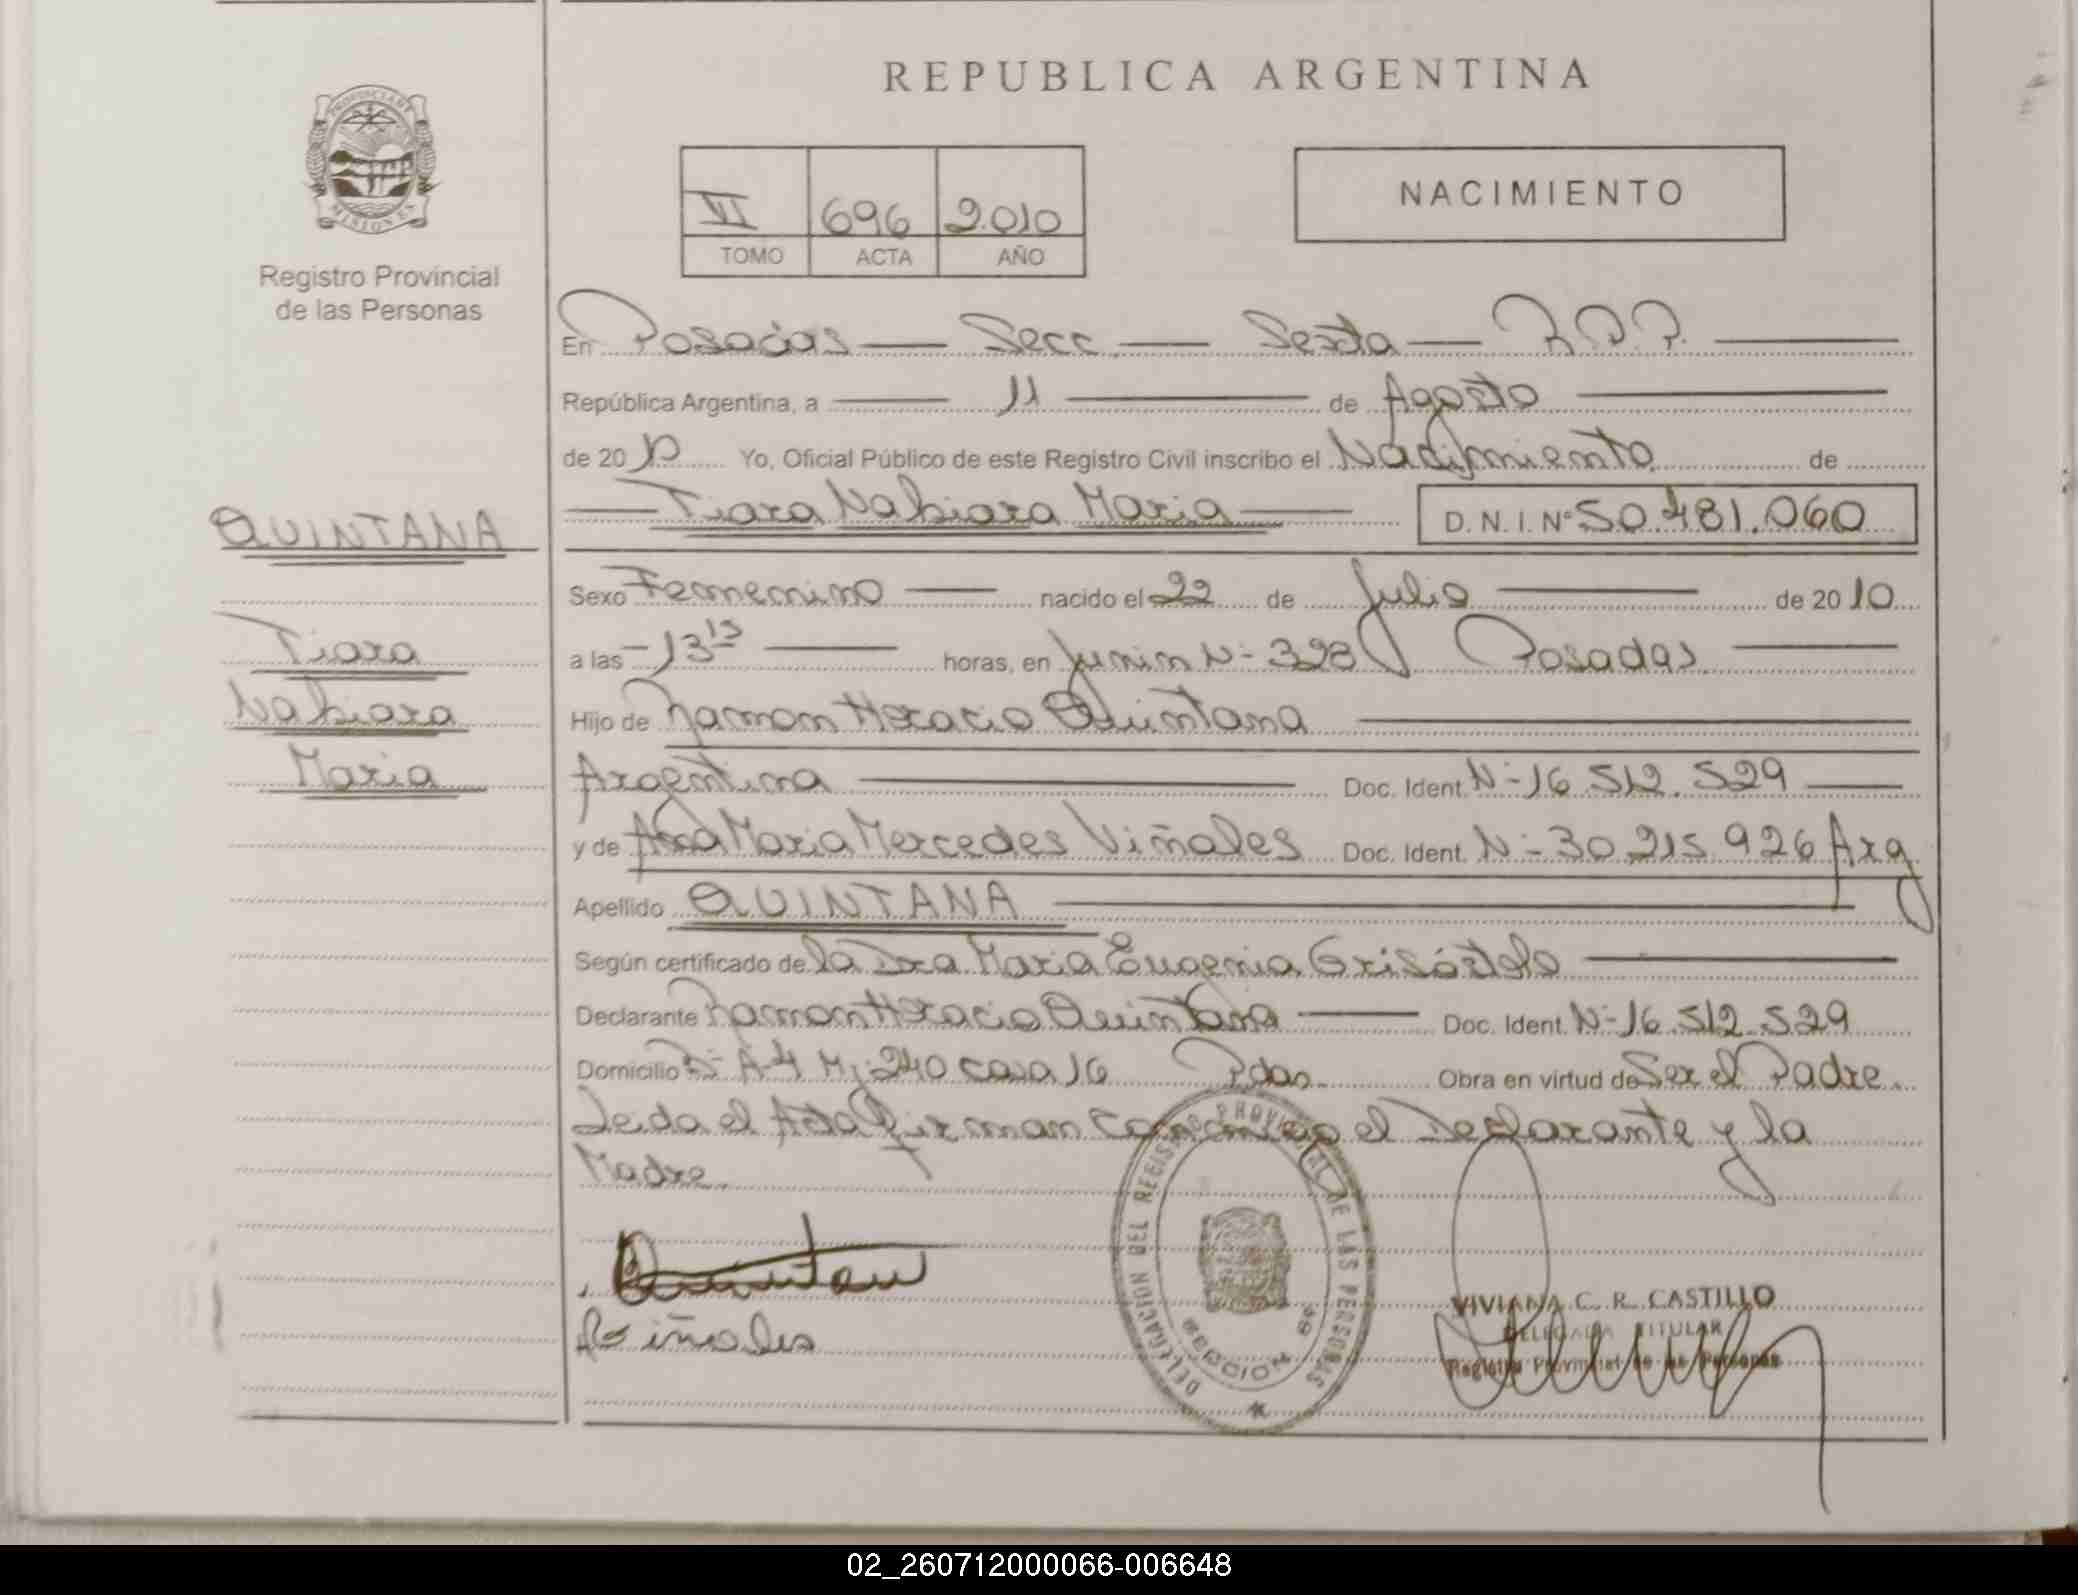 REPUBLICA ARGENTINA
PROVINCIA DE MISIONES
Registro Provincial
de las Personas
VI 696 2.010
TOMO ACTA AÑO
NACIMIENTO
En Posadas Secc Sexta R.P.P.
República Argentina, a 11 de Agosto
de 20 10 Yo, Oficial Público de este Registro Civil inscribo el Nacimiento de
Tiara Nahiara Maria D.N.I. Nº 50.481.060
QUINTANA
Tiara
Nahiara
Maria
Sexo Femenino nacido el 22 de Julio de 20 10
a las 13 15 horas, en Junin Nº 328 Posadas
Hijo de Ramon Horacio Quintana
Argentina Doc. Ident. Nº 16.512.529
y de Ana Maria Mercedes Viñales Doc. Ident. Nº 30.215.926 Arg
Apellido QUINTANA
Según certificado de la Dra Maria Eugenia
Declarante Ramon Horacio Quintana Doc. Ident. Nº 16.512.529
Domicilio A-4 Mz 240 casa 16 Pdas. Obra en virtud de Ser el Padre
Leida el Acta firman conmigo el Declarante y la
Madre.
DELEGACION DEL REGISTRO PROVINCIAL DE LAS PERSONAS
Viñales
VIVIANA C. R. CASTILLO
DELEGADA TITULAR
Registro Provincial de las Personas
02_260712000066-006648